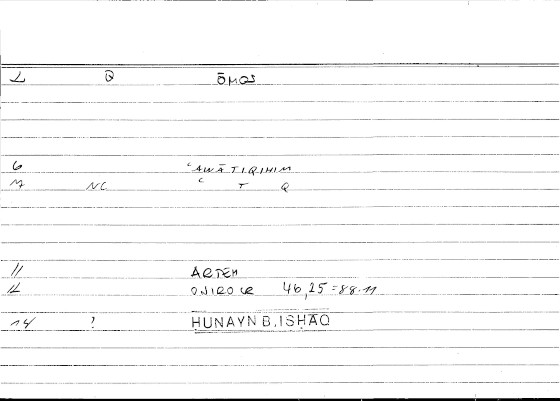 1 Q ŌMOS
6 ʿAWĀTIQIHIM
7 NC ʿ T Q
11 ARTEM
12 ONIROCR 46,25=88.11
14 ? HUNAYN B. ISHAQ